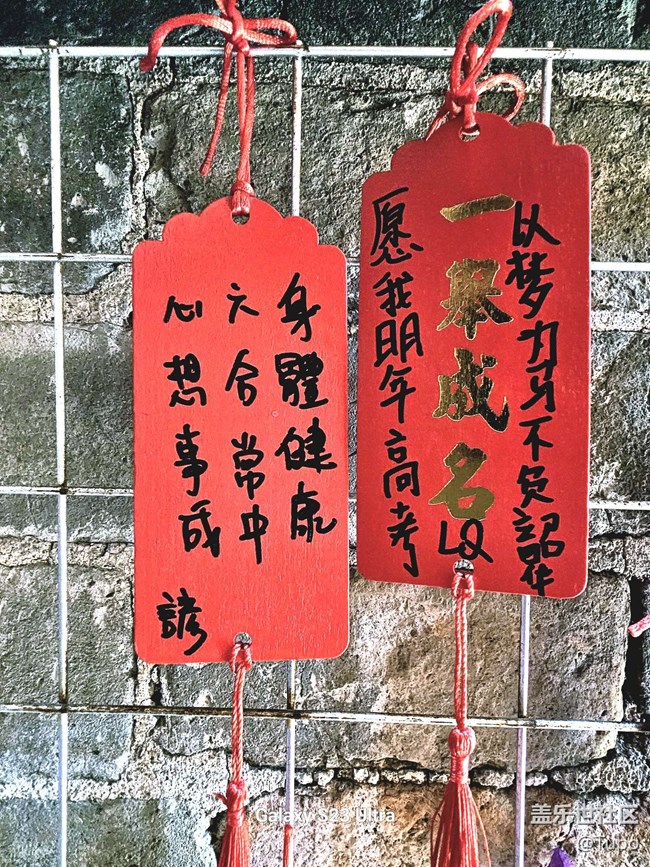 身體健康
六合常中
心想事成
諺
以梦为马不负韶华
一舉成名
愿我明年高考
LQ
Galaxy S23 Ultra
盖乐世社区
@Tubo